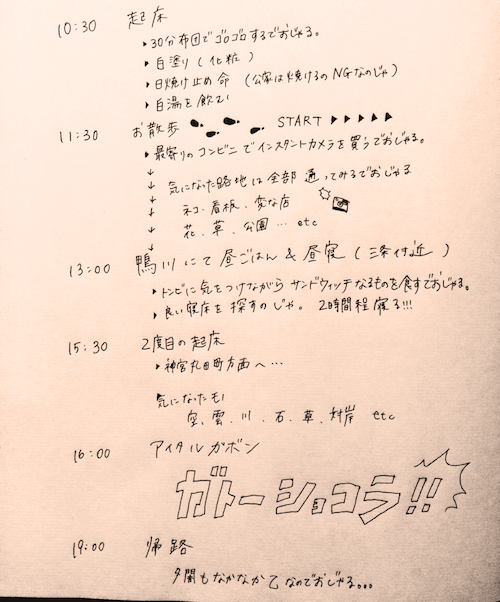 10:30 起床
▸30分布団でゴロゴロするでおじゃる。
▸白塗り(化粧)
▸日焼け止め命 (公家は焼けるのNGなのじゃ)
▸白湯を飲む
11:30 お散歩 START ▸▸▸▸▸
▸最寄りのコンビニでインスタントカメラを買うでおじゃる。
↓
↓ 気になった路地は全部通ってみるでおじゃる
↓ ネコ、看板、変な店
↓ 花、草、公園…etc
13:00 鴨川にて昼ごはん&昼寝(三条付近)
▸トンビに気をつけながらサンドウィッチなるものを食すでおじゃる。
▸良い寝床を探すのじゃ。2時間程寝る!!!
15:30 2度目の起床
▸神宮丸田町方面へ…
気になったもの
空、雲、川、石、草、対岸 etc
16:00 アイタルガボン
ガトーショコラ!!
19:00 帰路
夕闇もなかなか乙なのでおじゃる…